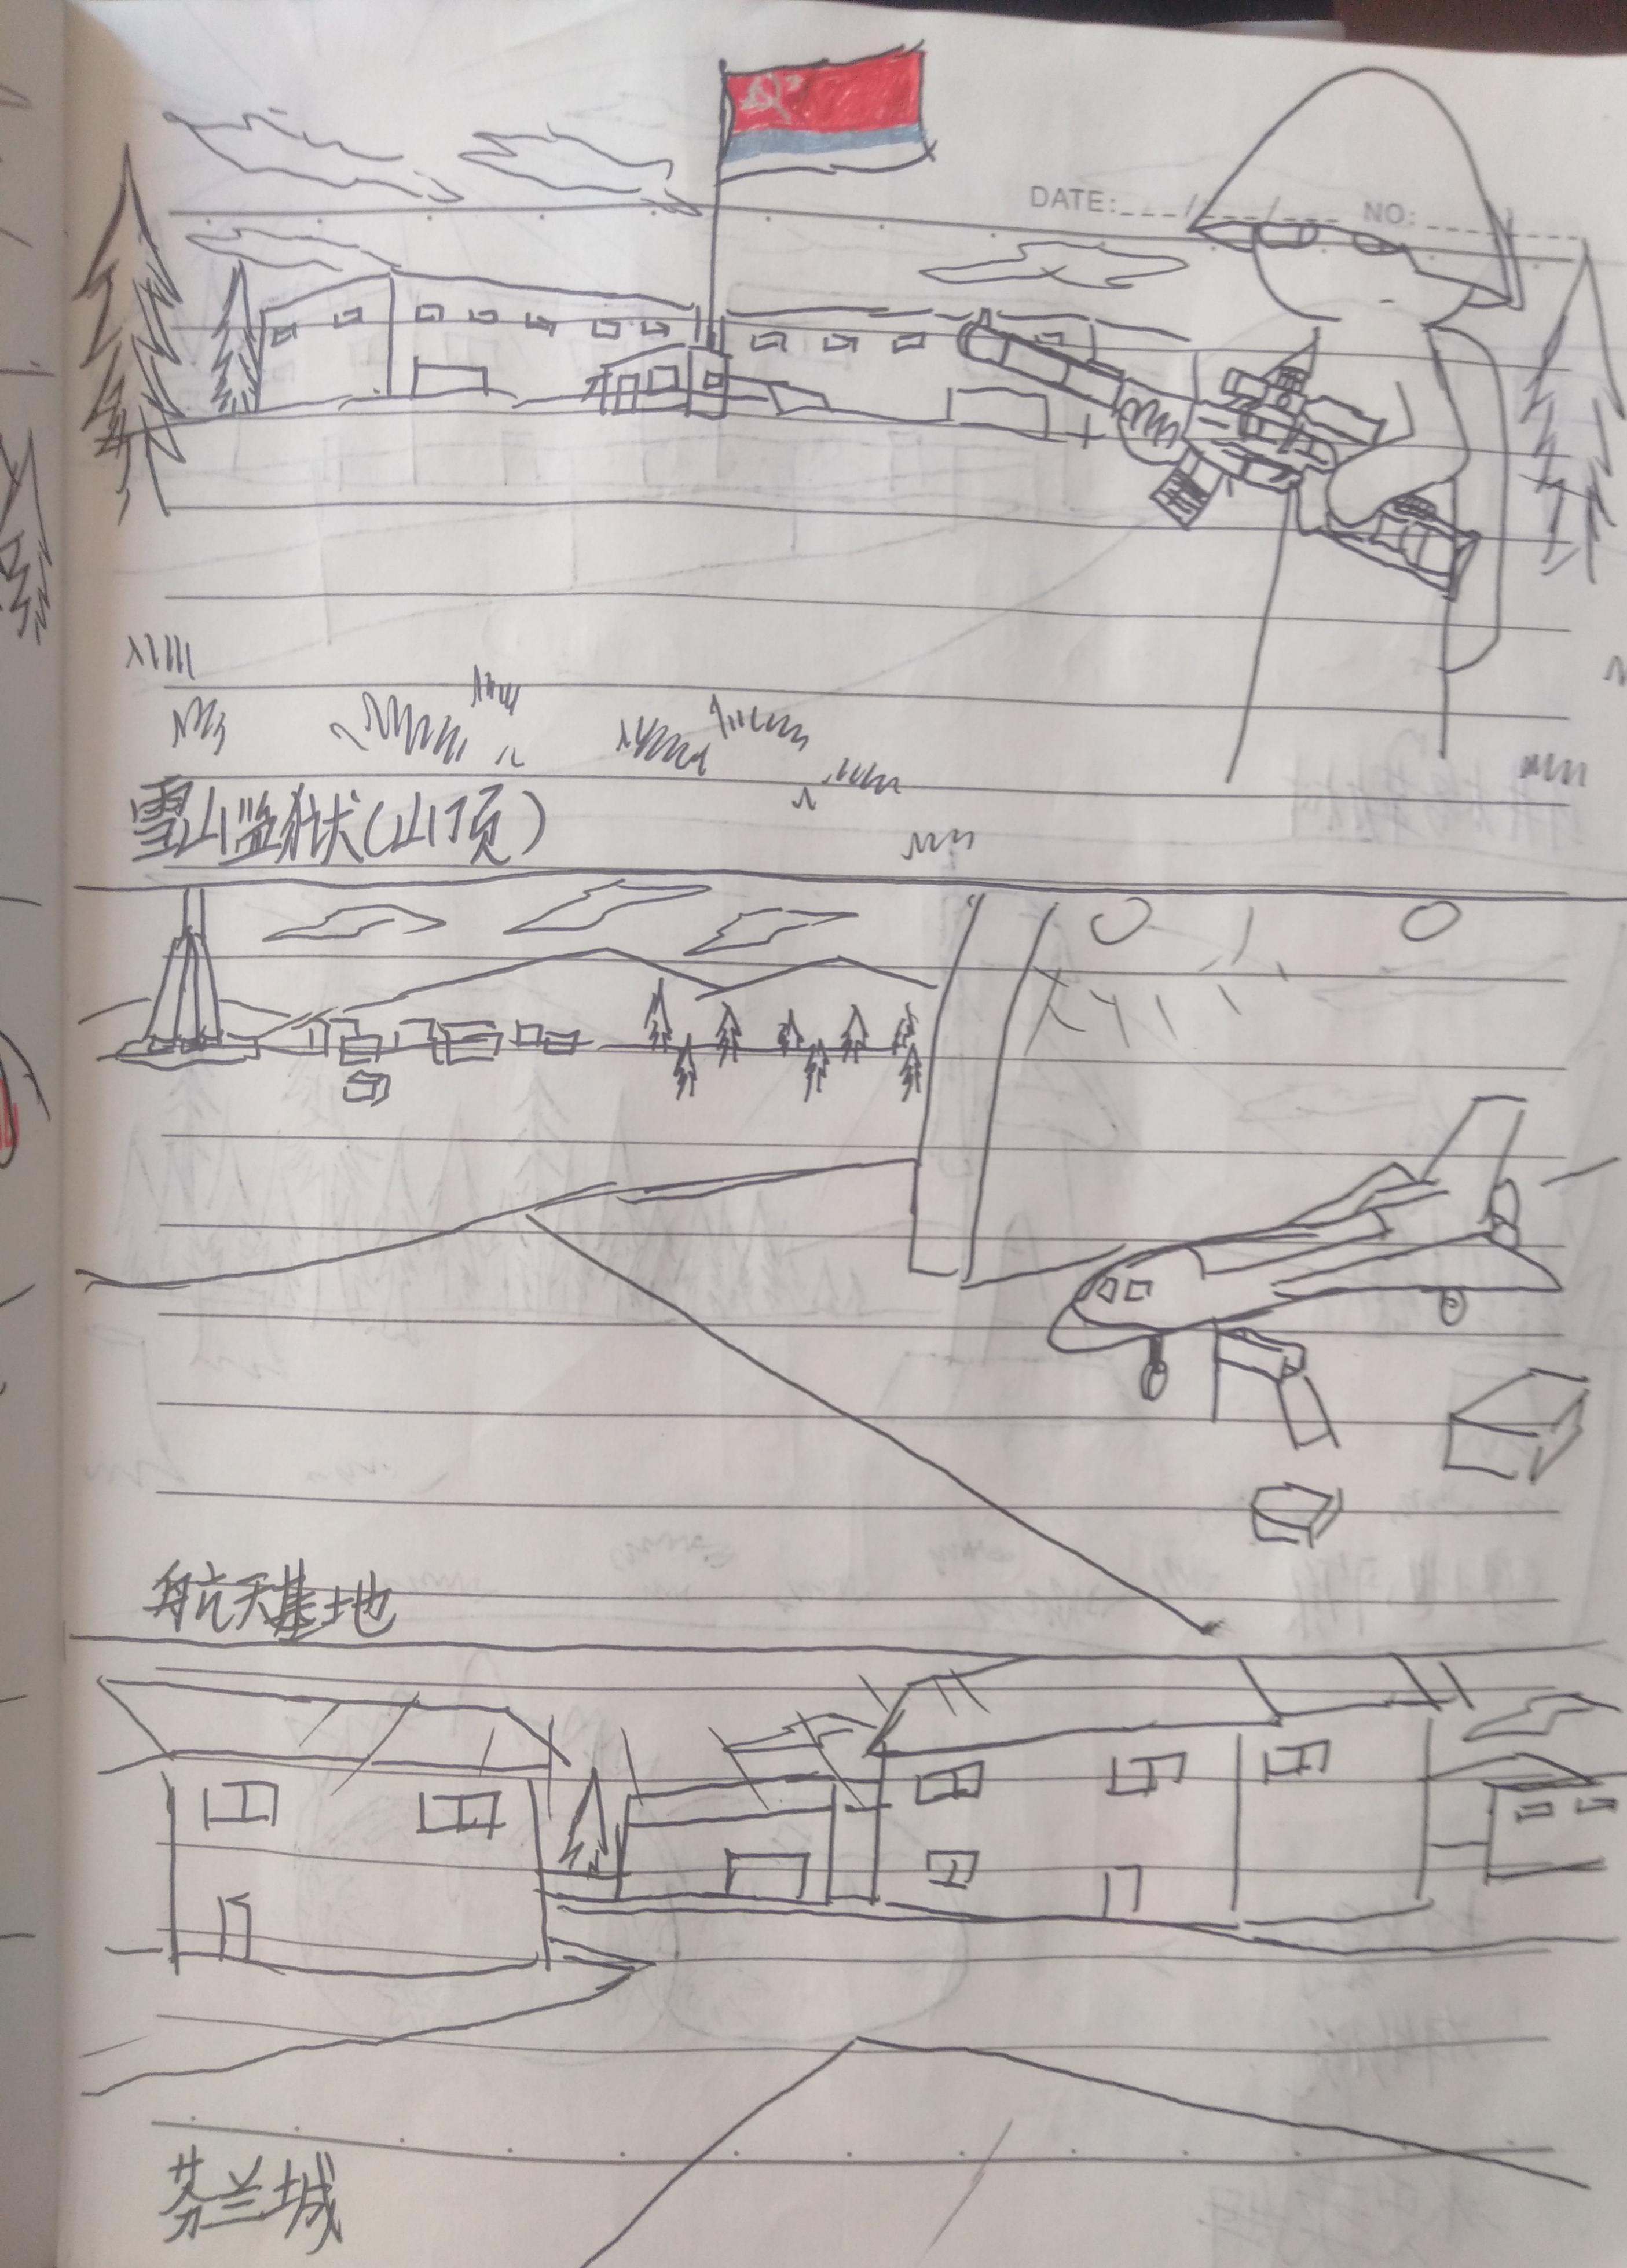 DATE:___/___/___ NO:______
雪山监狱(山顶)
航天基地
芬兰城